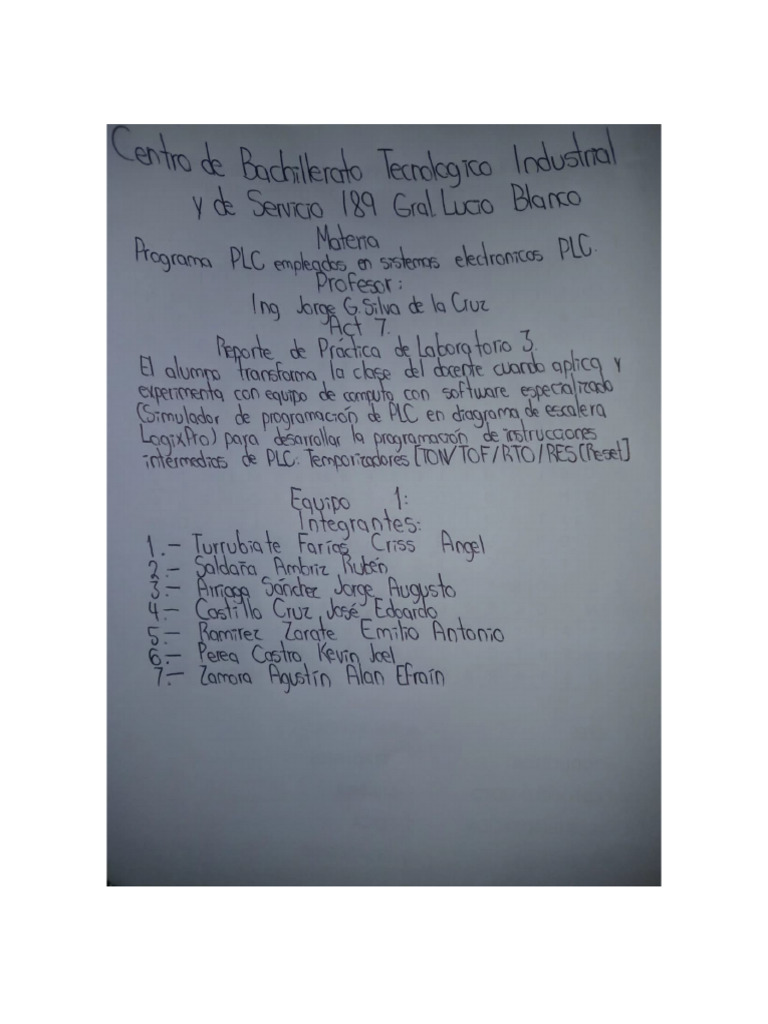 Centro de Bachillerato Tecnologico Industrial
y de Servicio 189 Gral Lucio Blanco
Materia
Programa PLC empleados en sistemas electronicos PLC.
Profesor:
Ing Jorge G. Silva de la Cruz
Act 7.
Reporte de Práctica de Laboratorio 3.
El alumno transforma la clase del docente cuando aplica y
experimenta con equipo de computo con software especializado
(Simulador de programación de PLC en diagrama de escalera
LogixPro) para desarrollar la programación de instrucciones
intermedias de PLC: Temporizadores [TON/TOF/RTO/RES(Reset]
Equipo 1:
Integrantes:
1.- Turrubiate Farías Criss Angel
2.- Saldaña Ambriz Rubén
3.- Arriaga Sánchez Jorge Augusto
4.- Castillo Cruz José Edoardo
5.- Ramirez Zarate Emilio Antonio
6.- Perea Castro Kevin Joel
7.- Zamora Agustín Alan Efraín